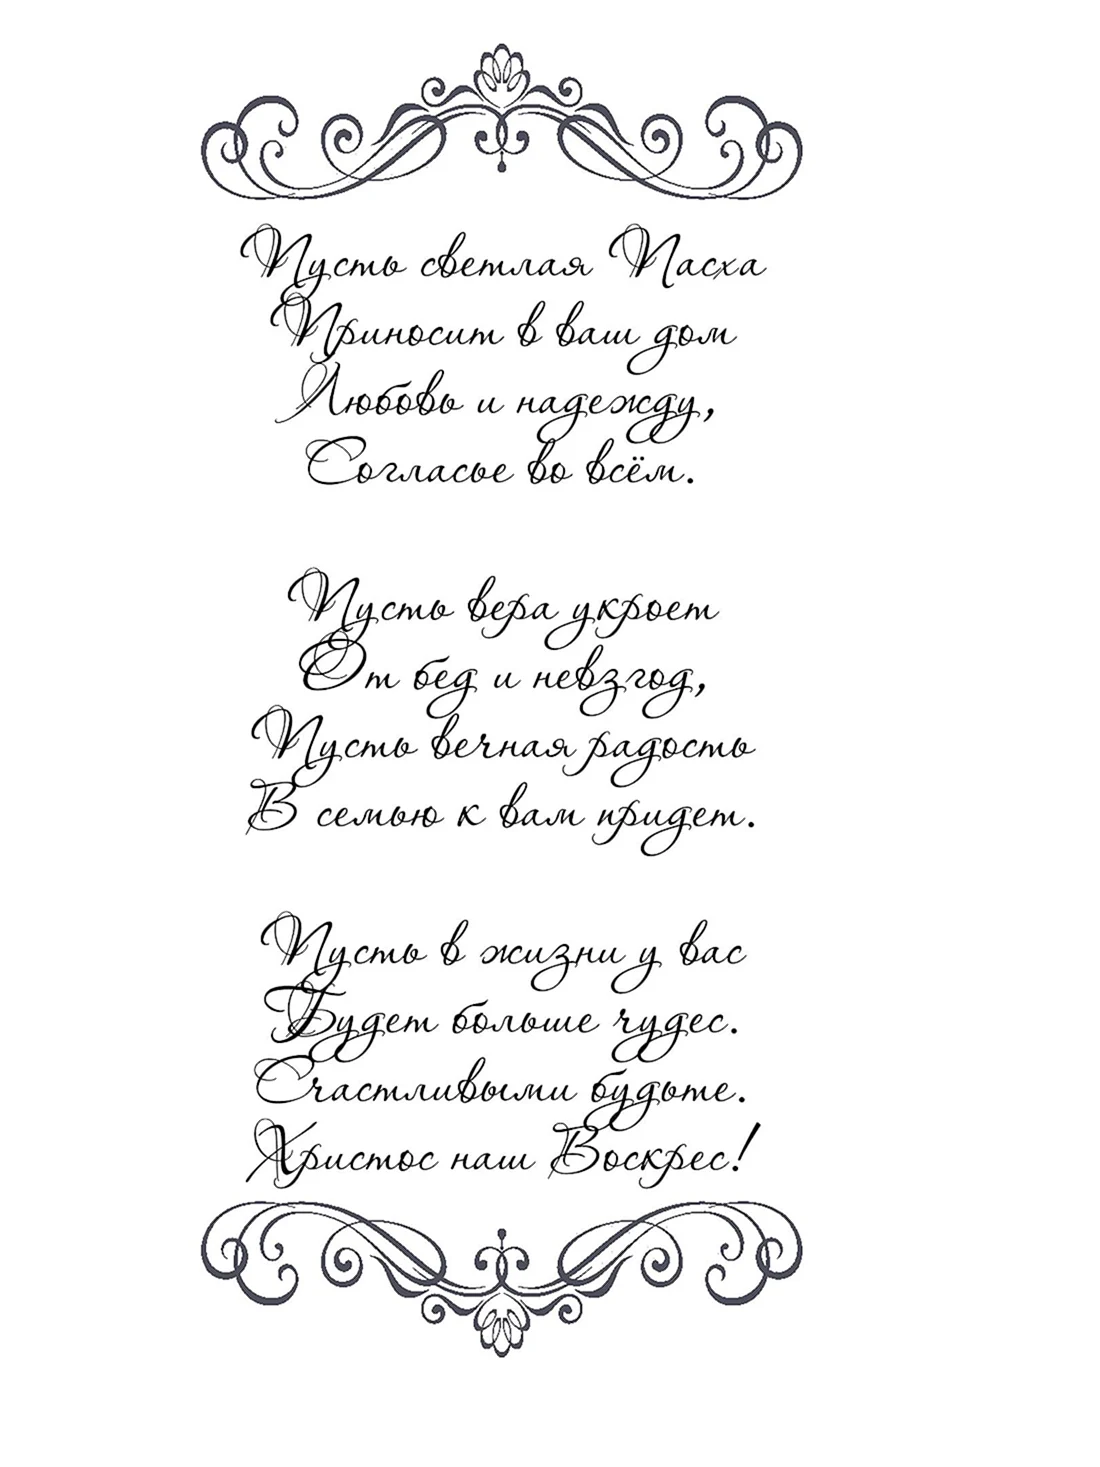 Пусть светлая Пасха
Приносит в ваш дом
Любовь и надежду,
Согласье во всём.
Пусть вера укроет
От бед и невзгод,
Пусть вечная радость
В семью к вам придет.
Пусть в жизни у вас
Будет больше чудес.
Счастливыми будьте.
Христос наш Воскрес!